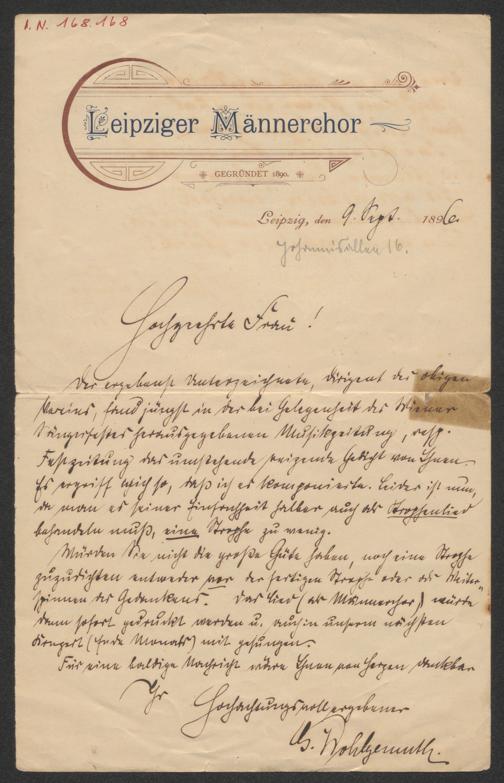 I. N. 168.168
Leipziger Männerchor
GEGRÜNDET 1890.
Leipzig, den 9. Sept. 1896.
Johannisallee 16.
Hochgeehrte Frau!
Der ergebenst Unterzeichnete, Dirigent des obigen
Vereins, fand jüngst in der bei Gelegenheit des Wiener
Sängerfestes herausgegebenen Musikzeitung, resp.
Festzeitung das umstehende reizende Gedicht von Ihnen.
Es ergriff mich so, daß ich es komponierte. Leider ist nun,
da man es seiner Einfachheit halber auch als Strophenlied
behandeln muß, eine Strophe zu wenig.
Würden Sie nicht die große Güte haben, noch eine Strophe
zuzudichten entweder vor der fertigen Strophe oder als Weiter-
spinnen des Gedankens. Das Lied (als Männerchor) würde
dann sofort gedruckt werden u. auch in unserm nächsten
Konzert (Ende Monats) mit gesungen.
Für eine baldige Nachricht wäre Ihnen von Herzen dankbar
Ihr
Hochachtungsvoll ergebener
G. Wohlgemuth.